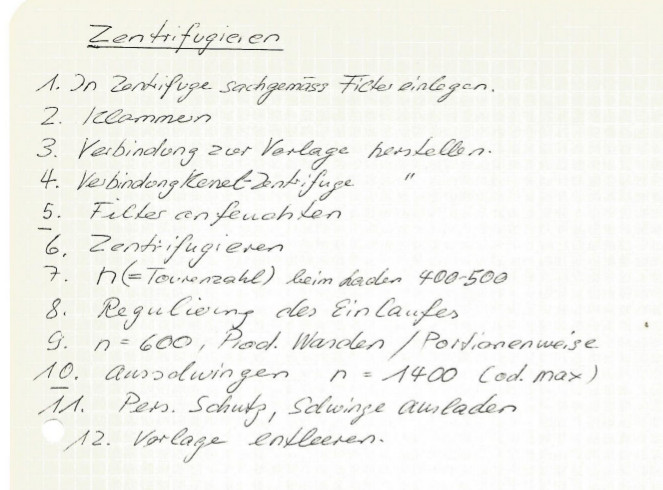 Zentrifugieren
1. In Zentrifuge sachgemäss Filter einlegen.
2. Klammern
3. Verbindung zur Vorlage herstellen.
4. Verbindung Kessel-Zentrifuge "
5. Filter anfeuchten
6. Zentrifugieren
7. n (= Tourenzahl) beim Laden 400-500
8. Regulierung des Einlaufes
9. n = 600, Prod. Waschen / Portionenweise
10. ausschwingen n = 1400 (od. max)
11. Pers. Schutz, Schwinge ausladen
12. Vorlage entleeren.